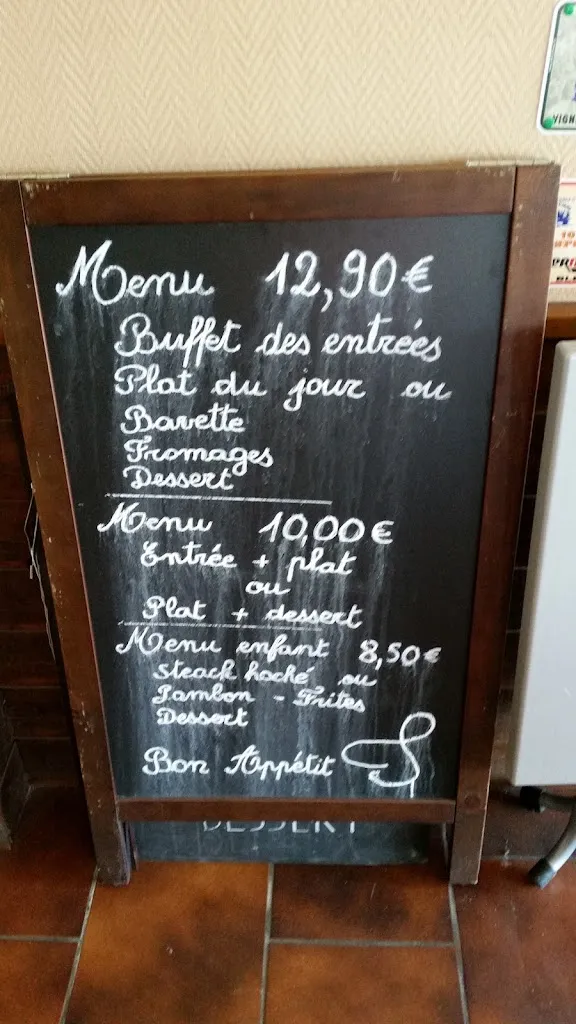 Menu 12,90€
Buffet des entrées
Plat du jour ou
Bavette
Fromages
Dessert
Menu 10,00€
Entrée + plat
ou
Plat + dessert
Menu enfant 8,50€
Steack haché ou
Jambon - Frites
Dessert
Bon Appétit
DESSERT
VIGN